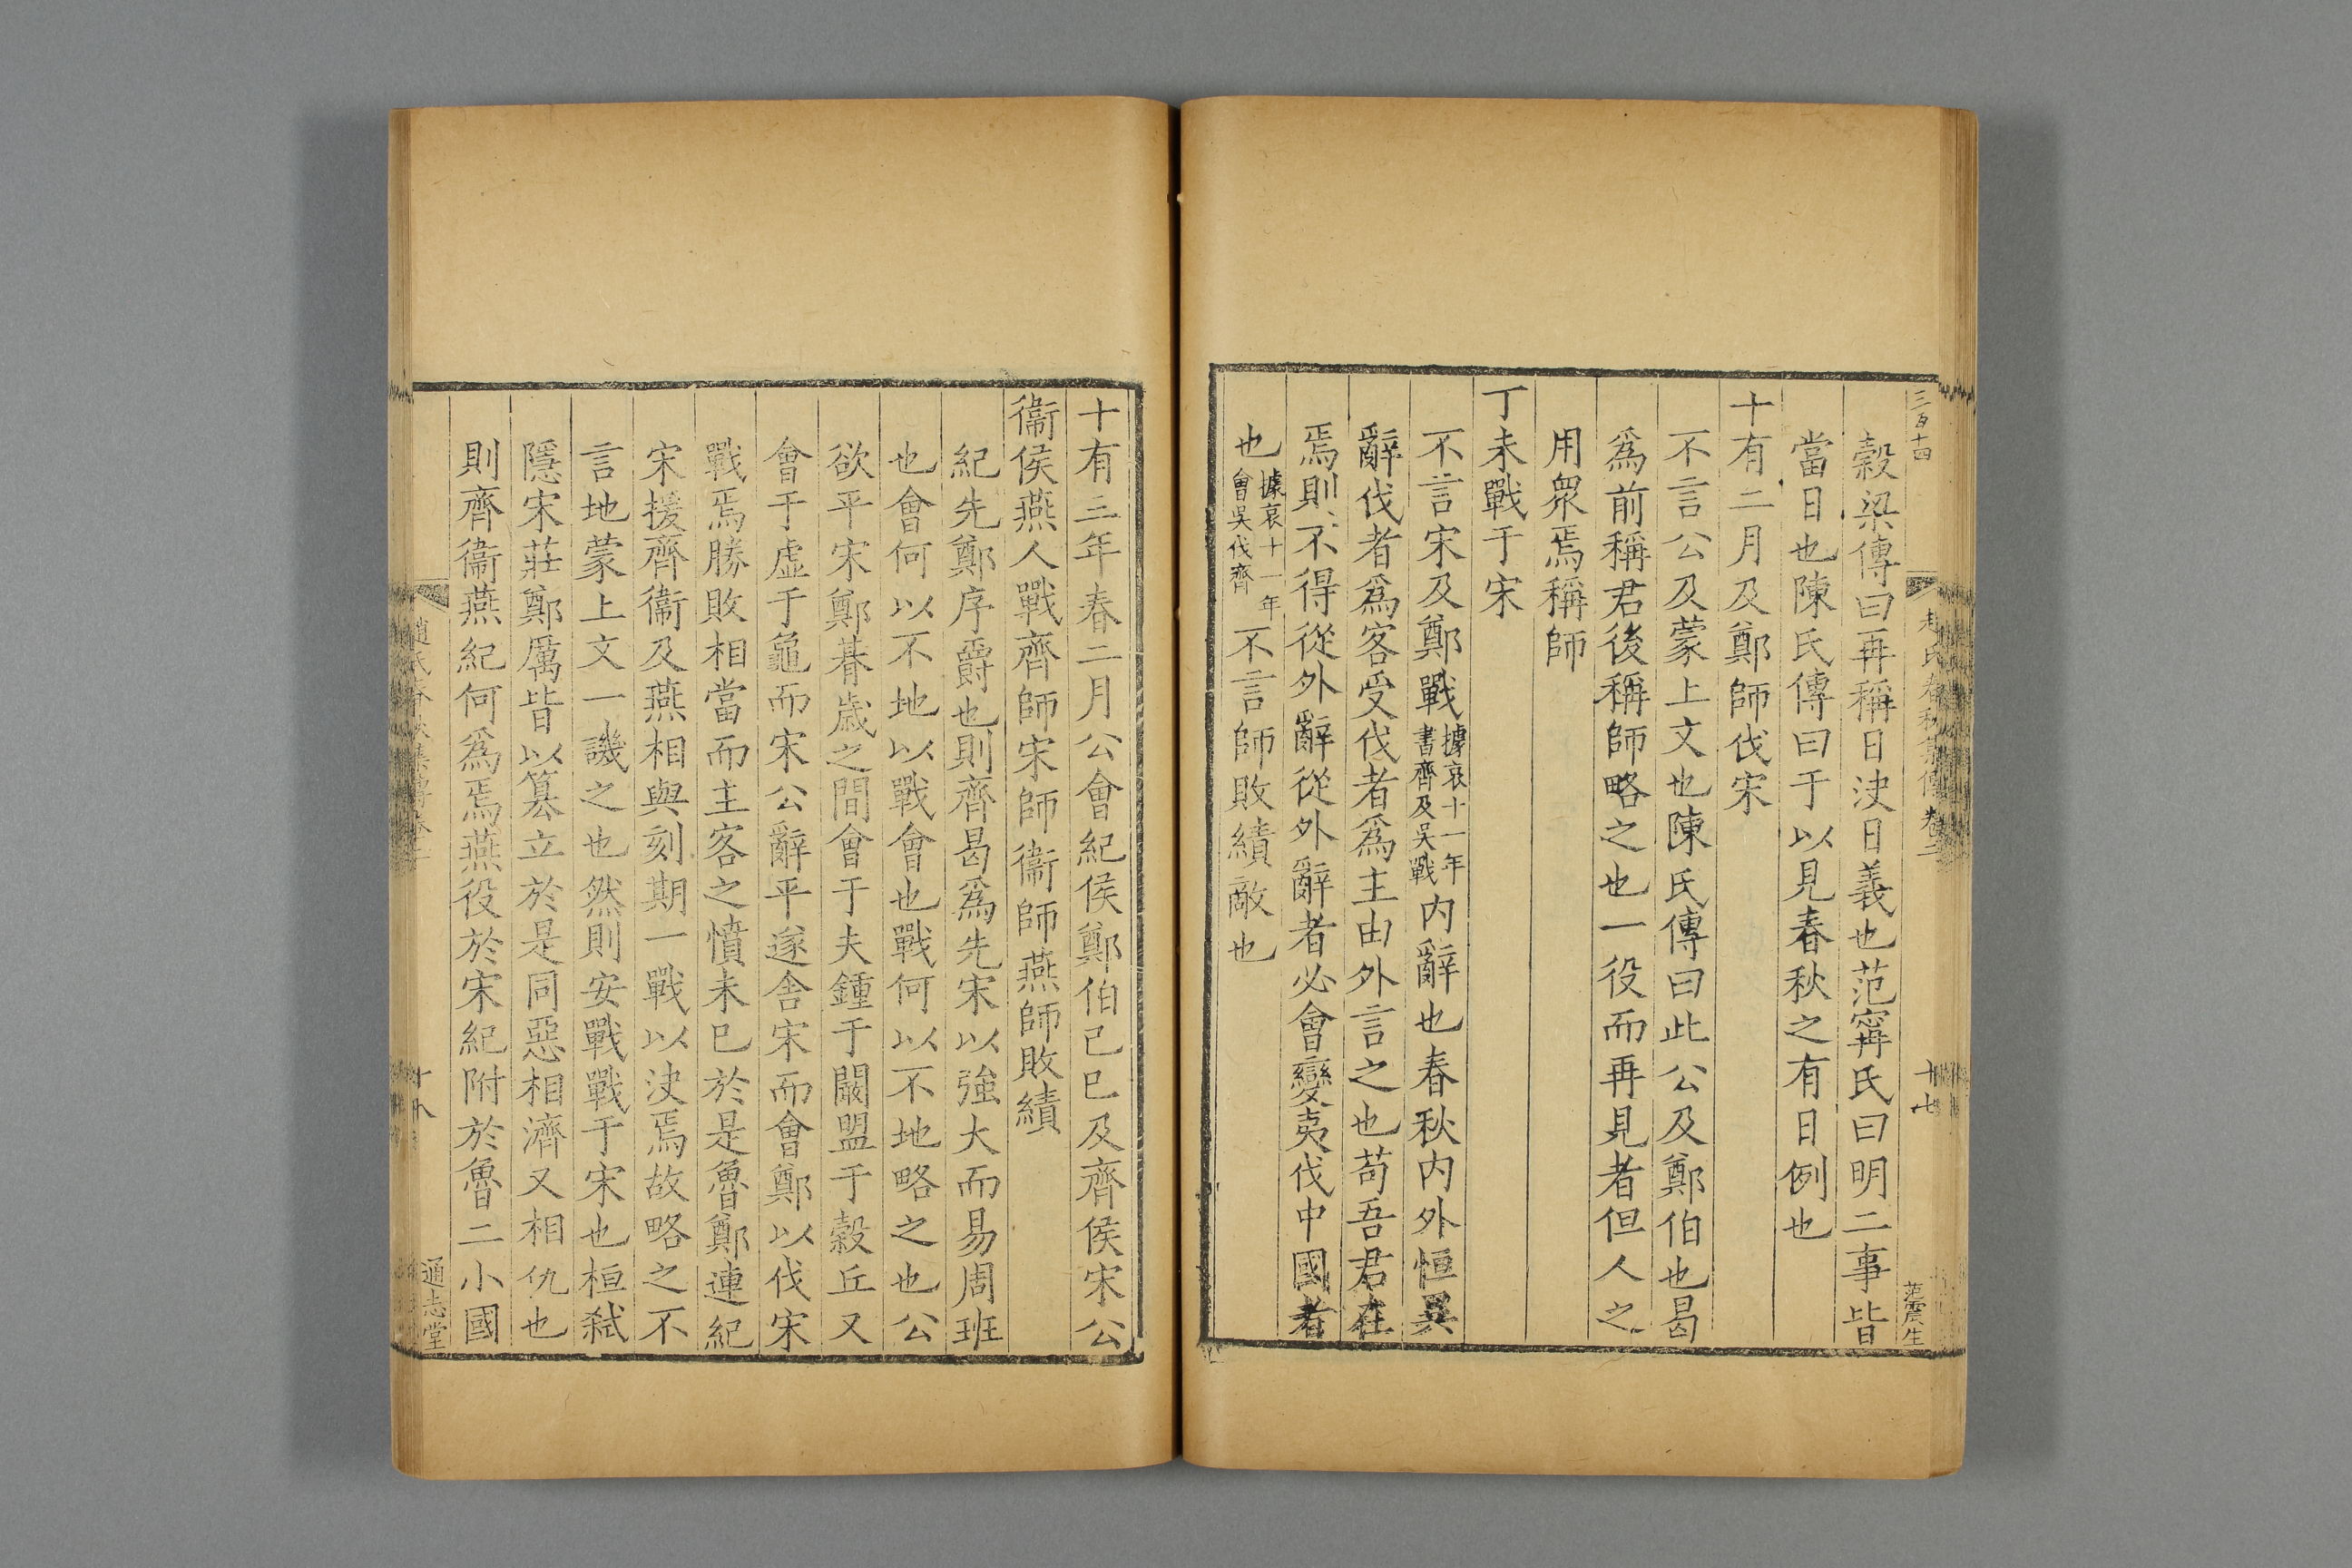 三百十四
趙氏春秋集傳 卷二
十七
范震生
穀梁傳曰再稱日決日義也范甯氏曰明二事皆
當日也陳氏傳曰于以見春秋之有日例也
十有二月及鄭師伐宋
不言公及蒙上文也陳氏傳曰此公及鄭伯也曷
爲前稱君後稱師略之也一役而再見者但人之
用衆焉稱師
丁未戰于宋
不言宋及鄭戰據哀十一年書齊及吳戰內辭也春秋內外恒異
辭伐者爲客受伐者爲主由外言之也苟吾君在
焉則不得從外辭從外辭者必會變夷伐中國者
也據哀十一年會吳伐齊不言師敗績敵也
十有三年春二月公會紀侯鄭伯己巳及齊侯宋公
衞侯燕人戰齊師宋師衞師燕師敗績
紀先鄭序爵也則齊曷爲先宋以強大而易周班
也會何以不地以戰會也戰何以不地略之也公
欲平宋鄭朞歲之間會于夫鍾于闞盟于穀丘又
會于虛于龜而宋公辭平遂舍宋而會鄭以伐宋
戰焉勝敗相當而主客之憤未已於是魯鄭連紀
宋援齊衞及燕相與刻期一戰以決焉故略之不
言地蒙上文一譏之也然則安戰戰于宋也桓弑
隱宋莊鄭厲皆以簒立於是同惡相濟又相仇也
則齊衞燕紀何爲焉燕役於宋紀附於魯二小國
趙氏春秋集傳卷二
十八
通志堂